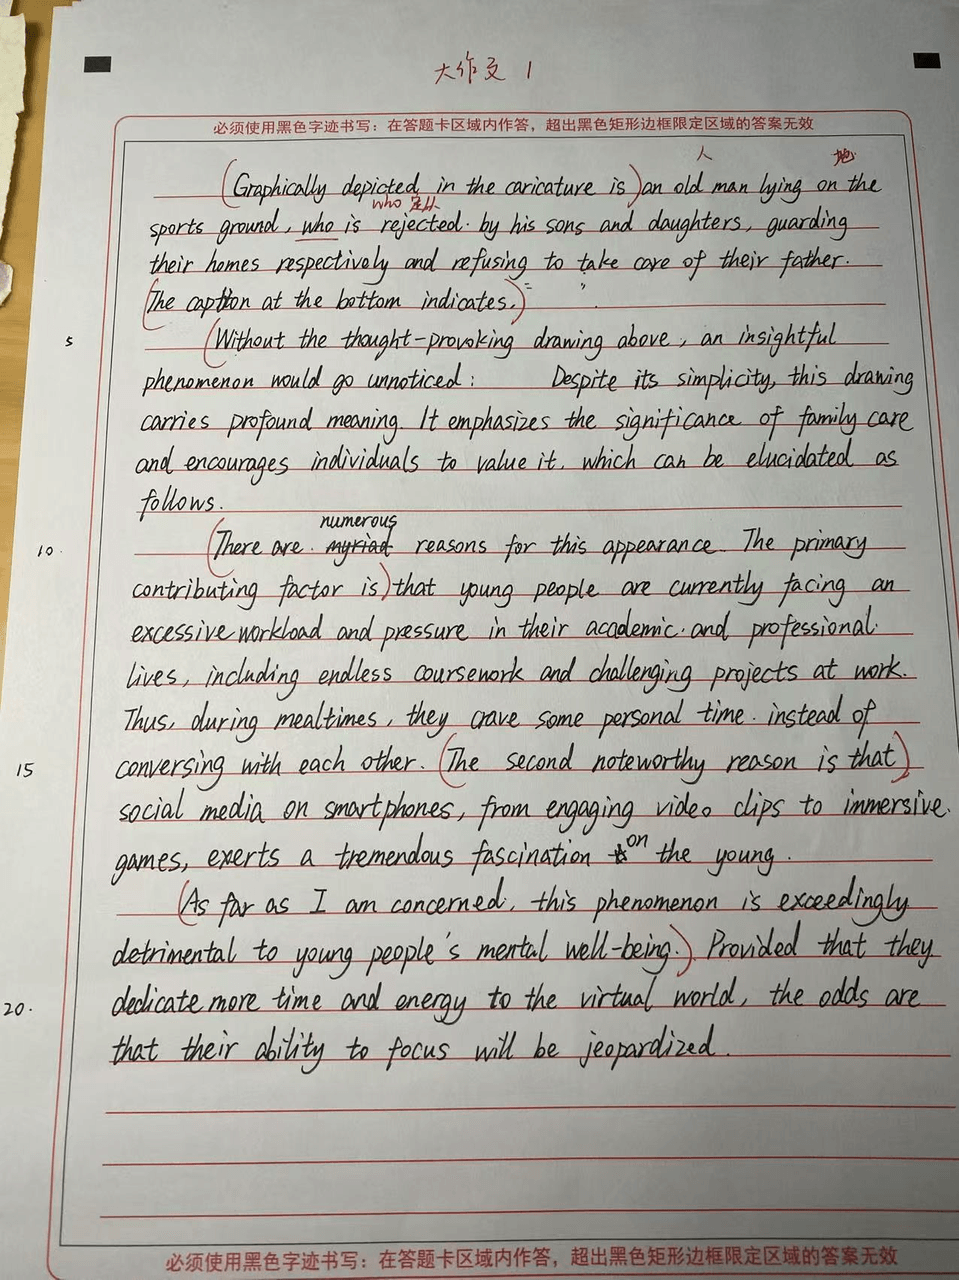 大作文 1
必须使用黑色字迹书写：在答题卡区域内作答，超出黑色矩形边框限定区域的答案无效
人 地
(Graphically depicted in the caricature is) an old man lying on the
who 定从
sports ground, who is rejected by his sons and daughters, guarding
their homes respectively and refusing to take care of their father.
(The caption at the bottom indicates,) " " .
5 (Without the thought-provoking drawing above, an insightful
phenomenon would go unnoticed: Despite its simplicity, this drawing
carries profound meaning. It emphasizes the significance of family care
and encourages individuals to value it, which can be elucidated as
follows.
numerous
10. (There are myriad reasons for this appearance. The primary
contributing factor is) that young people are currently facing an
excessive workload and pressure in their academic and professional
lives, including endless coursework and challenging projects at work.
Thus, during mealtimes, they crave some personal time instead of
15 conversing with each other. (The second noteworthy reason is that)
social media on smartphones, from engaging video clips to immersive
games, exerts a tremendous fascination on the young.
(As far as I am concerned, this phenomenon is exceedingly
detrimental to young people's mental well-being.) Provided that they
20. dedicate more time and energy to the virtual world, the odds are
that their ability to focus will be jeopardized.
必须使用黑色字迹书写：在答题卡区域内作答，超出黑色矩形边框限定区域的答案无效